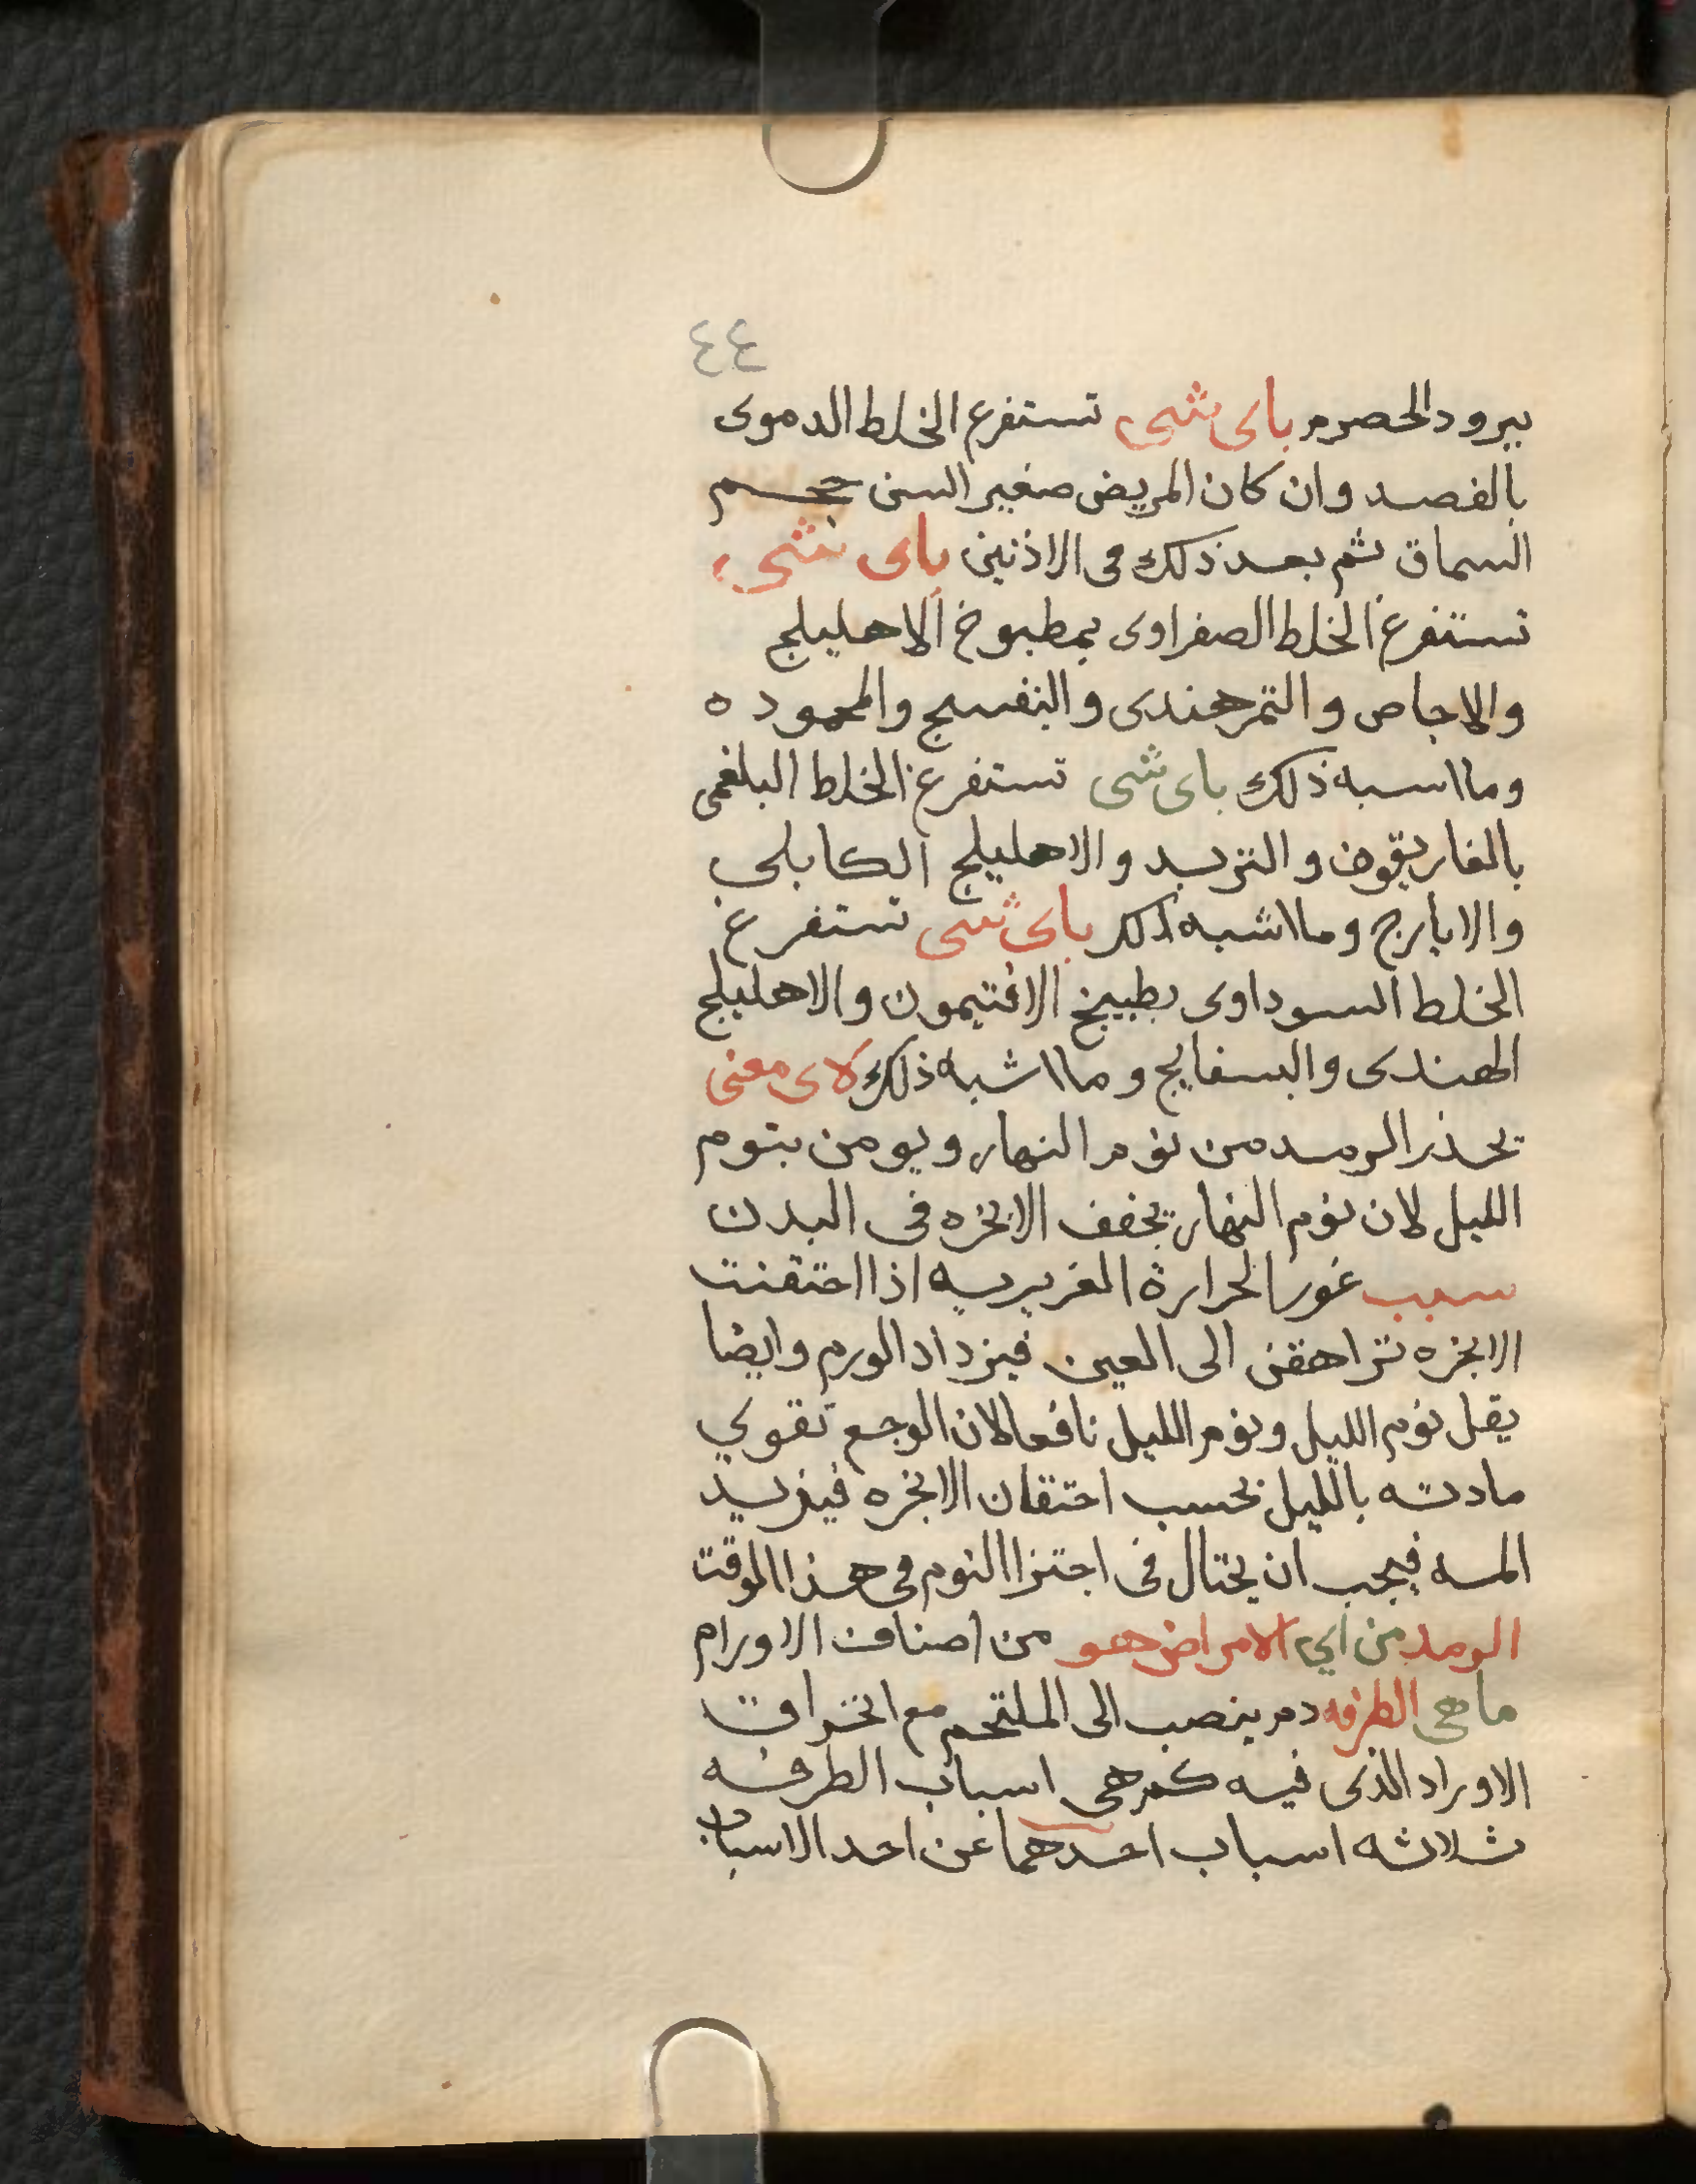 ٤٤
ببرود الحصرم باى شى تستفرع الخلط الدموى
بالفصد وان كان المريض صغير السن
السماق ثم بعد ذلك فى الاذنين باى شى
تستفرغ الخلط الصفراوى بمطبوخ الاهليلج
والاجاص والتمرهندى والبنفسج والمحموده
وما اسبه ذلك باى شى تستفرغ الخلط البلغمى
بالغاريقون والتربد والاهليلج الكابلي
والايارج وما اشبه ذلك باى شى تستفرغ
الخلط السوداوى بطبيخ الافتيمون والاهليلج
الهندى والبسفايج وما اشبه ذلك لاى معنى
يحذر الرمد من نوم النهار ويومن بنوم
الليل لان نوم النهار يخفف الابخره فى البدن
سبب غور الحرارة الغريريه اذا احتقنت
الابخره الى العين فيزداد الورم وايضا
يقل نوم الليل ونوم الليل نافعا لان الوجع تقوي
مادته بالليل بحسب احتقان الابخره فيزيد
المه فيجب ان يحتال فى النوم فى هذا الوقت
الرمد من اي الامراض هو من اصناف الاورام
ما هى الطرفه دم ينصب الى الملتحم مع انخراق
الاوراد الذى فيه كم هى اسباب الطرفه
ثلاثه اسباب احدهما عن احد الاسباب